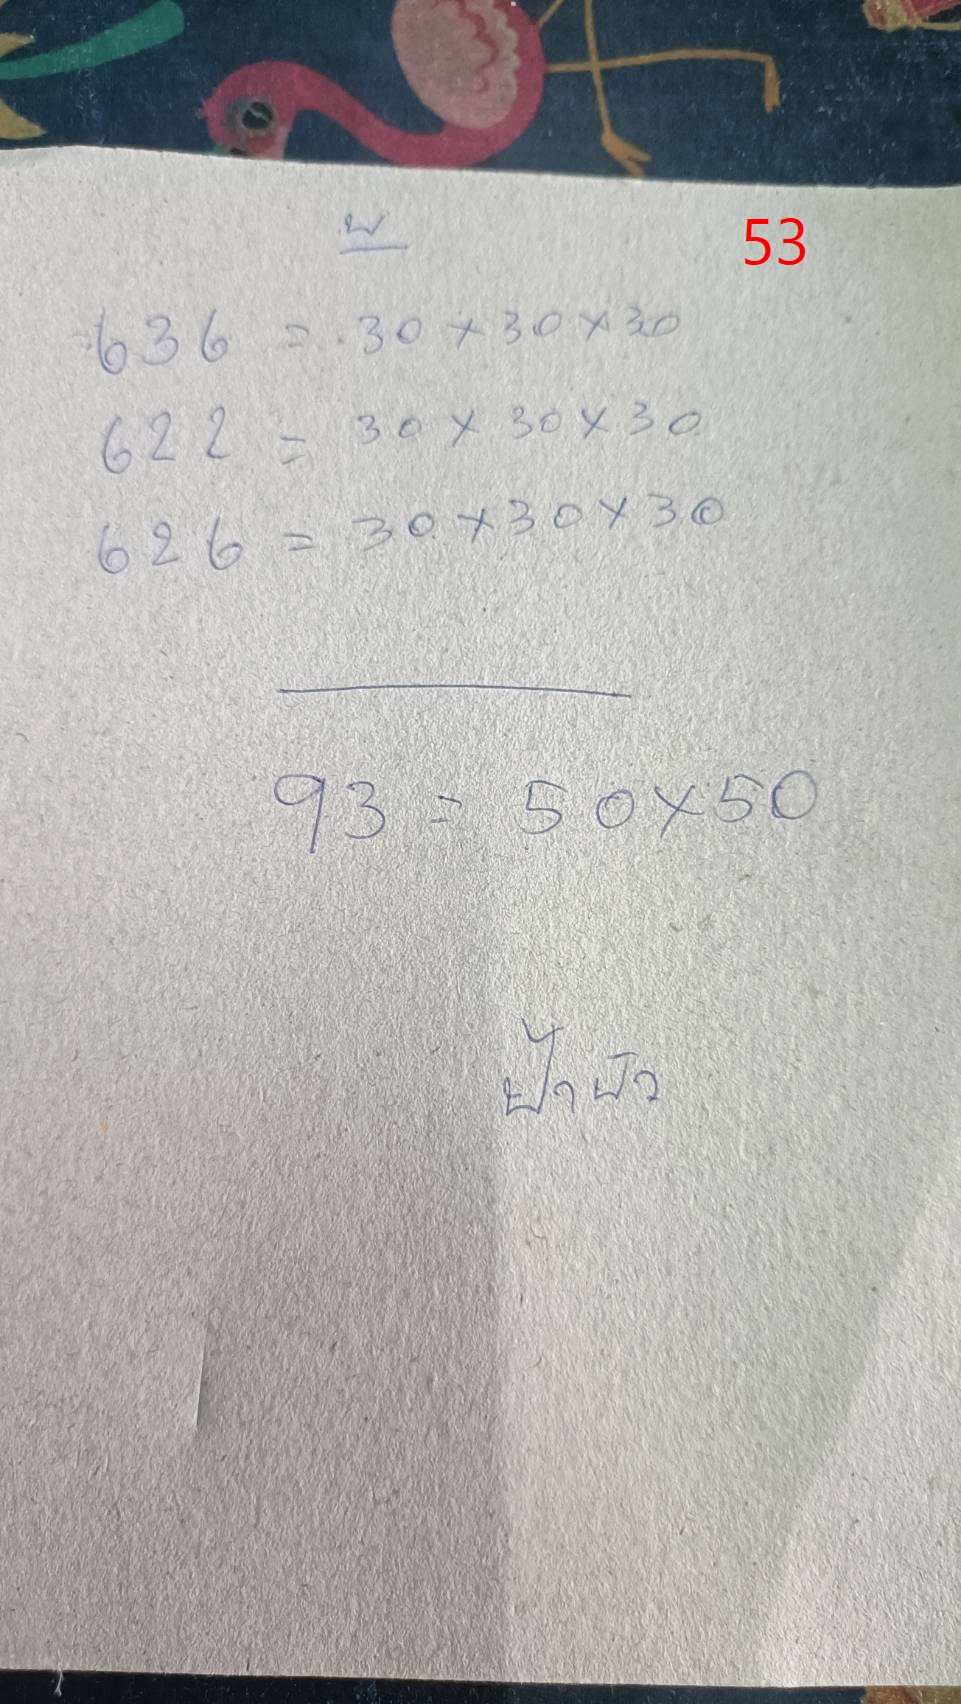 บ 53
636 = 30×30×30
622 = 30×30×30
626 = 30×30×30
93 = 50×50
ป้าบัว